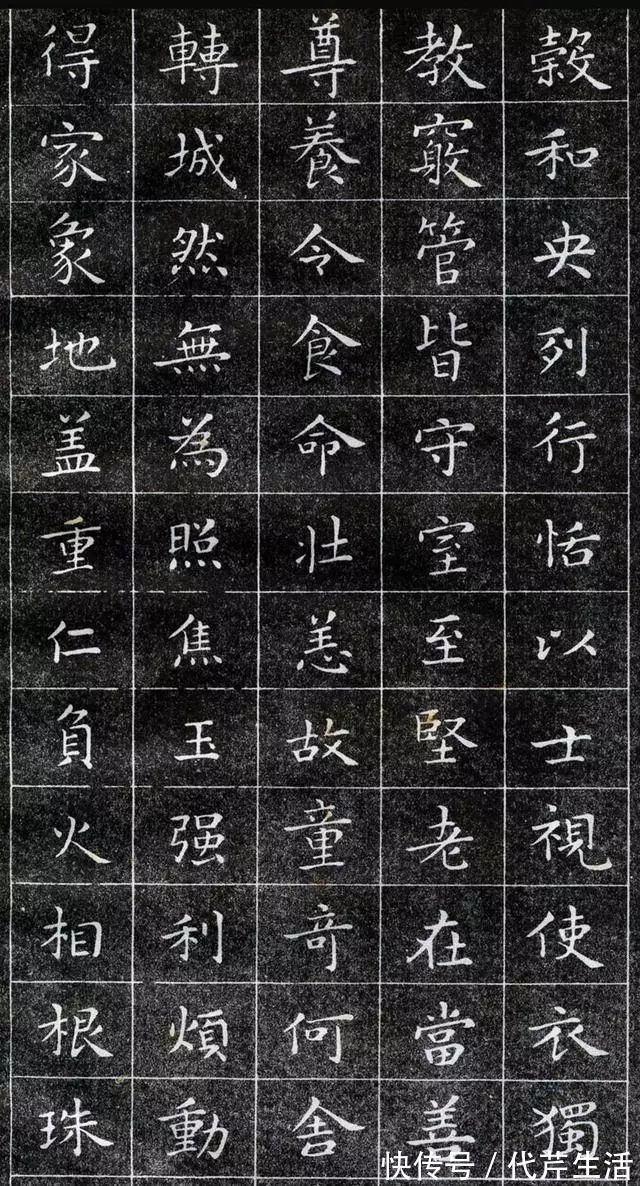 穀和央列行恬以士視使衣獨
教竅管皆守室至堅老在當善
尊養令食命壯恙故童奇何舍
轉城然無為照焦玉强利煩動
得家象地盖重仁負火相根珠
快传号/代芹生活